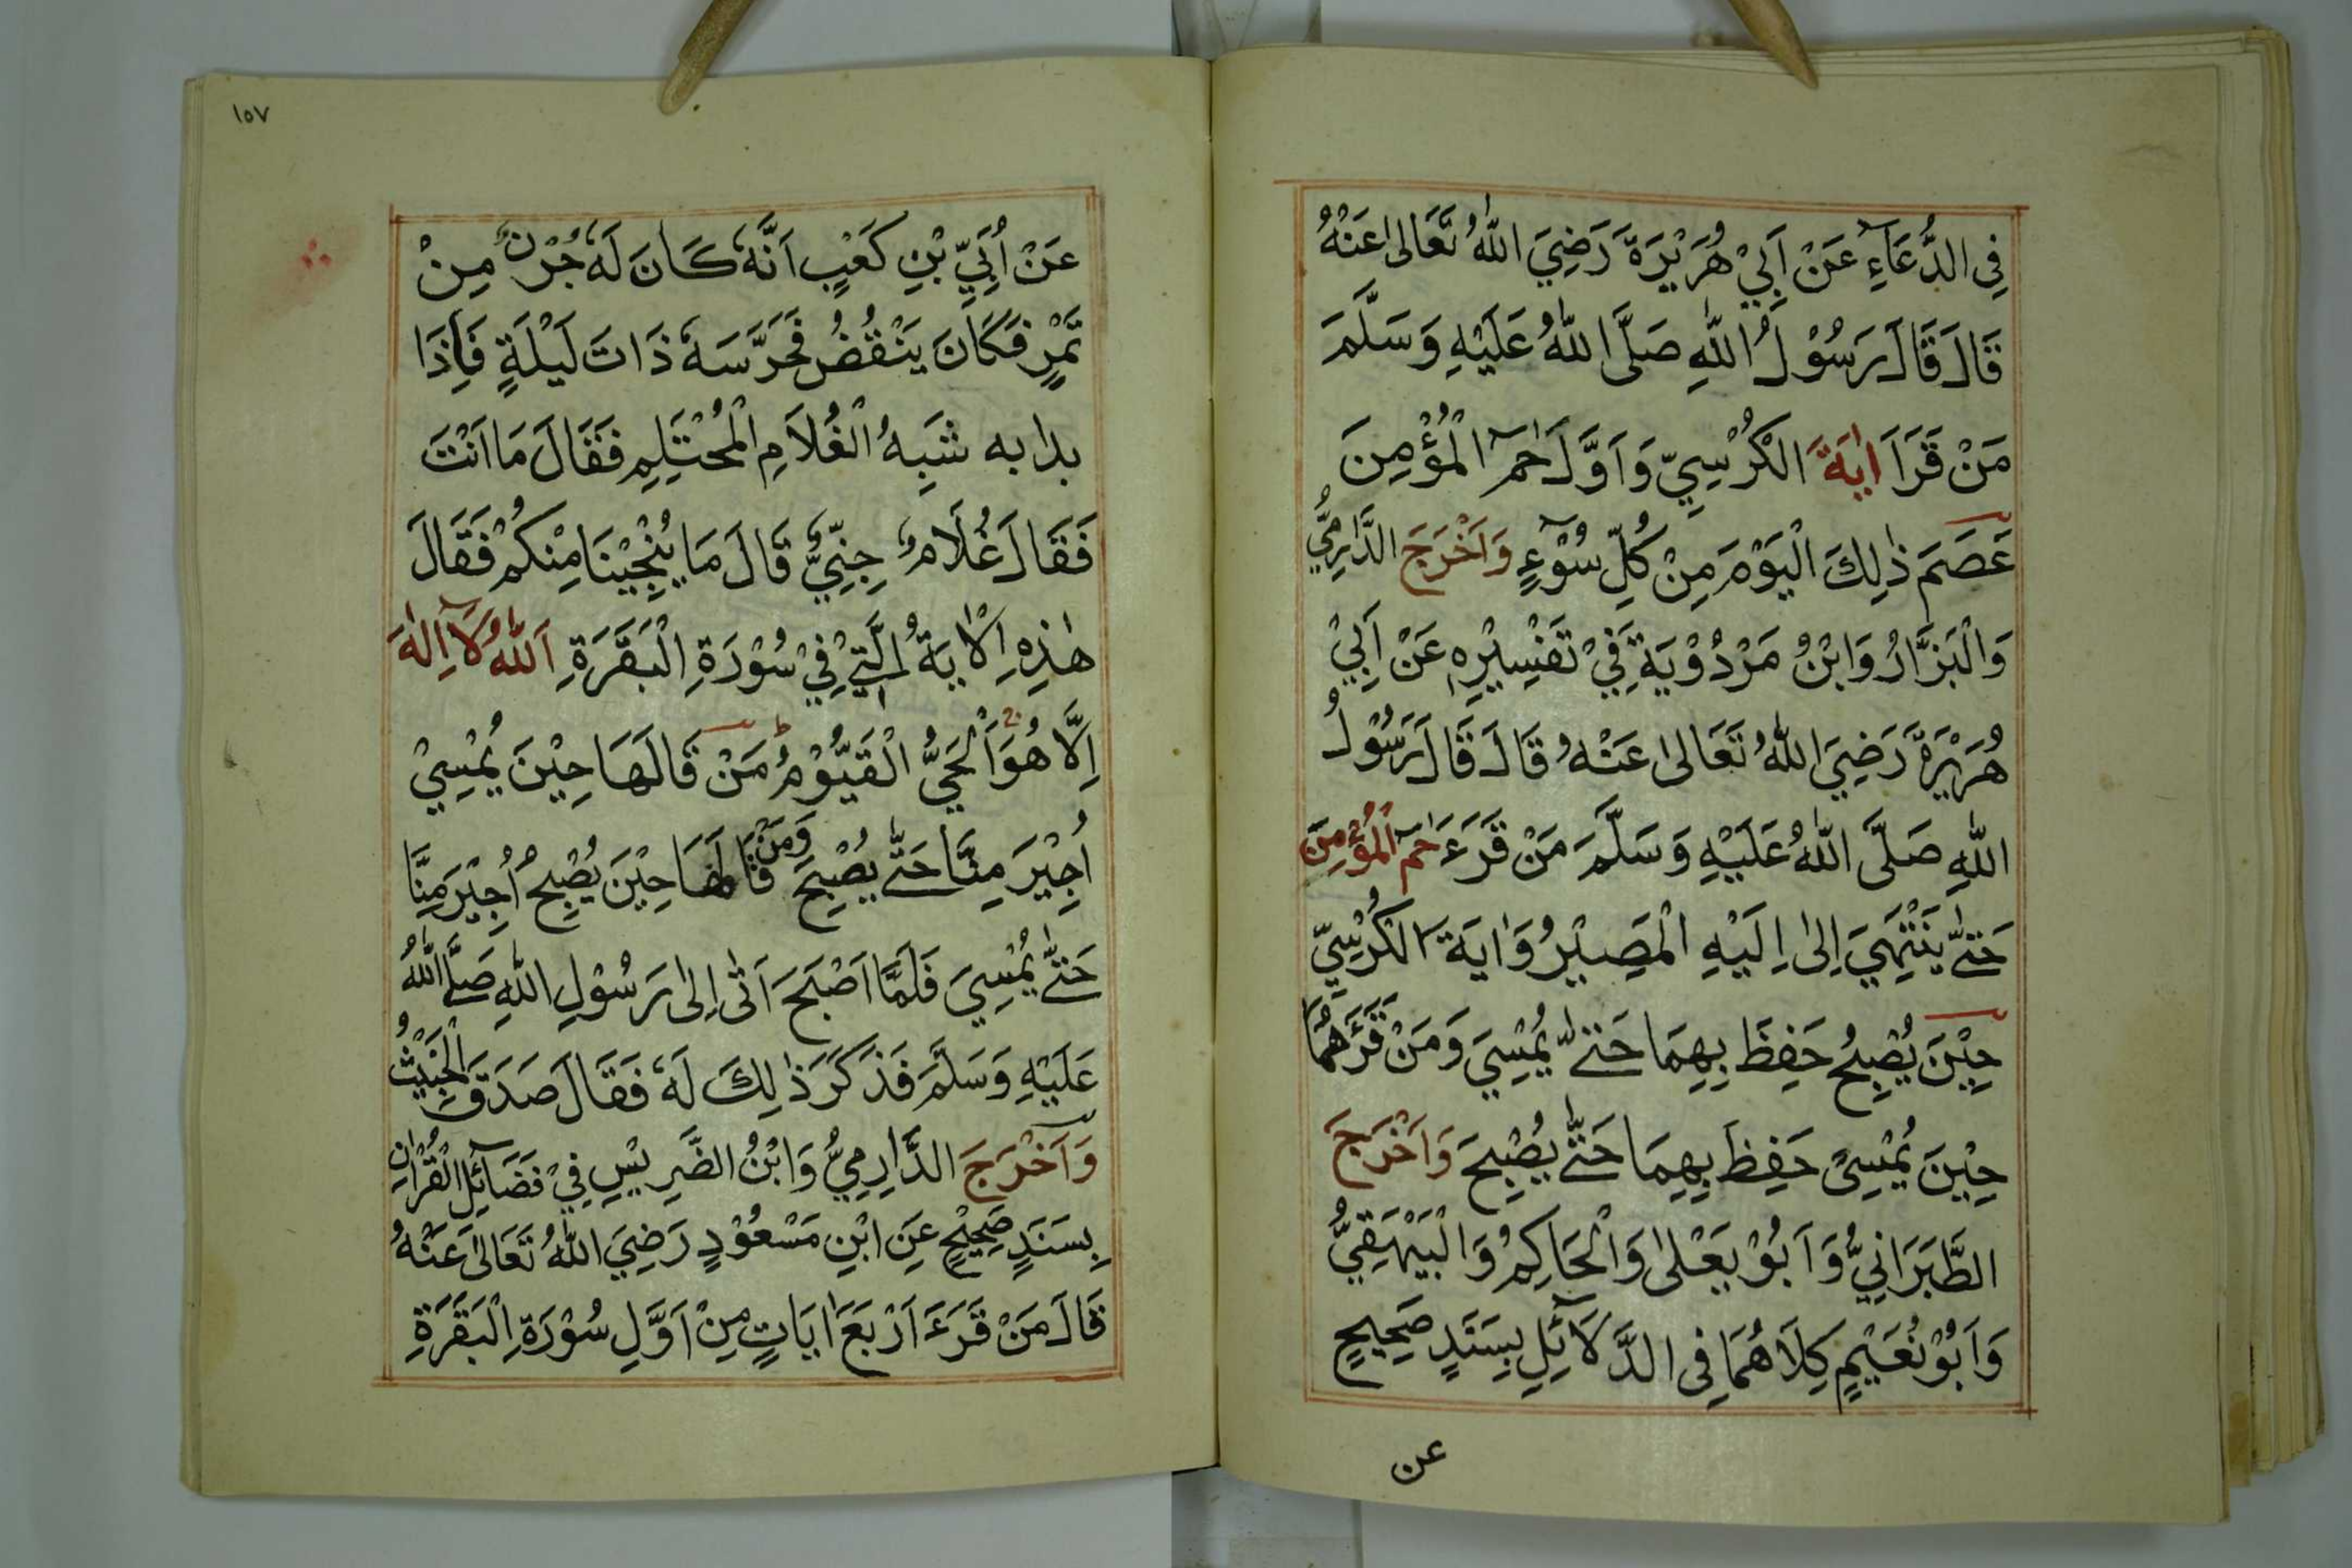 فِى الدُّعَآءِ عَنْ اَبِيْ هُرَيْرَةَ رَضِيَ اللّٰهُ تَعَالٰى عَنْهُ
قَالَ قَالَ رَسُوْلُ اللّٰهِ صَلَّى اللّٰهُ عَلَيْهِ وَسَلَّمَ
مَنْ قَرَاَ اٰيَةَ الْكُرْسِيِّ وَاَوَّلَ حٰمٓ الْمُؤْمِنَ
عَصَمَ ذٰلِكَ الْيَوْمَ مِنْ كُلِّ سُوْٓءٍ وَاَخْرَجَ الدَّارِمِيُّ
وَالْبَزَّارُ وَابْنُ مَرْدُوْيَةَ فِيْ تَفْسِيْرِهٖ عَنْ اَبِيْ
هُرَيْرَةَ رَضِيَ اللّٰهُ تَعَالٰى عَنْهُ قَالَ قَالَ رَسُوْلُ
اللّٰهِ صَلَّى اللّٰهُ عَلَيْهِ وَسَلَّمَ مَنْ قَرَءَ حٰمٓ الْمُؤْمِنَ
حَتّٰى يَنْتَهِيَ اِلٰى اِلَيْهِ الْمَصِيْرُ وَاٰيَةَ الْكُرْسِيِّ
حِيْنَ يُصْبِحُ حَفِظَ بِهِمَا حَتّٰى يُمْسِيَ وَمَنْ قَرَءَهُمَا
حِيْنَ يُمْسِىْ حَفِظَ بِهِمَا حَتّٰى يُصْبِحَ وَاَخْرَجَ
الطَّبَرَانِيُّ وَاَبُوْ يَعْلٰى وَالْحَاكِمُ وَالْبَيْهَقِيُّ
وَاَبُوْ نُعَيْمٍ كِلَاهُمَا فِى الدَّلَائِلِ بِسَنَدٍ صَحِيْحٍ
عن
١٥٧
عَنْ اُبَيِّ بْنِ كَعْبٍ اَنَّهٗ كَانَ لَهٗ جُرْنٌ مِنْ
تَمْرٍ فَكَانَ يَنْقُضُ فَحَرَّسَهٗ ذَاتَ لَيْلَةٍ فَاِذَا
بدابه شَبِهُ الْغُلَامِ الْمُحْتَلِمِ فَقَالَ مَا اَنْتَ
فَقَالَ غُلَامٌ جِنِّيٌّ قَالَ مَا يُنْجِيْنَا مِنْكُمْ فَقَالَ
هٰذِهِ الْاٰيَةُ الَّتِيْ فِيْ سُوْرَةِ الْبَقَرَةِ اَللّٰهُ لَآ اِلٰهَ
اِلَّا هُوَ اَلْحَيُّ الْقَيُّوْمُ مَنْ قَالَهَا حِيْنَ يُمْسِيْ
اُجِيْرَ مِنَّا حَتّٰى يُصْبِحَ وَمَنْ قَالَهَا حِيْنَ يُصْبِحُ اُجِيْرَ مِنَّا
حَتّٰى يُمْسِيَ فَلَمَّا اَصْبَحَ اَتٰى اِلٰى رَسُوْلِ اللّٰهِ صَلَّى اللّٰهُ
عَلَيْهِ وَسَلَّمَ فَذَكَرَ ذٰلِكَ لَهٗ فَقَالَ صَدَقَ الْخَبِيْثُ
وَاَخْرَجَ الدَّارِمِيُّ وَابْنُ الضَّرِيْسِ فِيْ فَضَآئِلِ الْقُرْاٰنِ
بِسَنَدٍ صَحِيْحٍ عَنِ ابْنِ مَسْعُوْدٍ رَضِيَ اللّٰهُ تَعَالٰى عَنْهُ
قَالَ مَنْ قَرَءَ اَرْبَعَ اٰيَاتٍ مِنْ اَوَّلِ سُوْرَةِ الْبَقَرَةِ